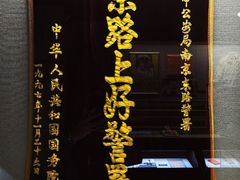 市公安局南京东路警署
京路上好警署
中华人民共和国国务院
一九九七年十一月二十五日